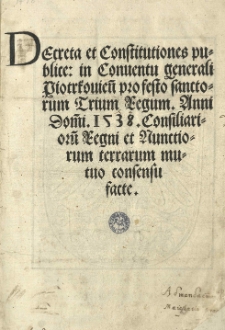 DEcreta et Constitutiones pu-
blice: in Conuentu generali
Piotrkouieñ pro festo sancto-
rum Trium Regum. Anni
Domĩ. 1538. Consiliari-
orũ Regni et Nunctio-
rum terrarum mu-
tuo consensu
facte.